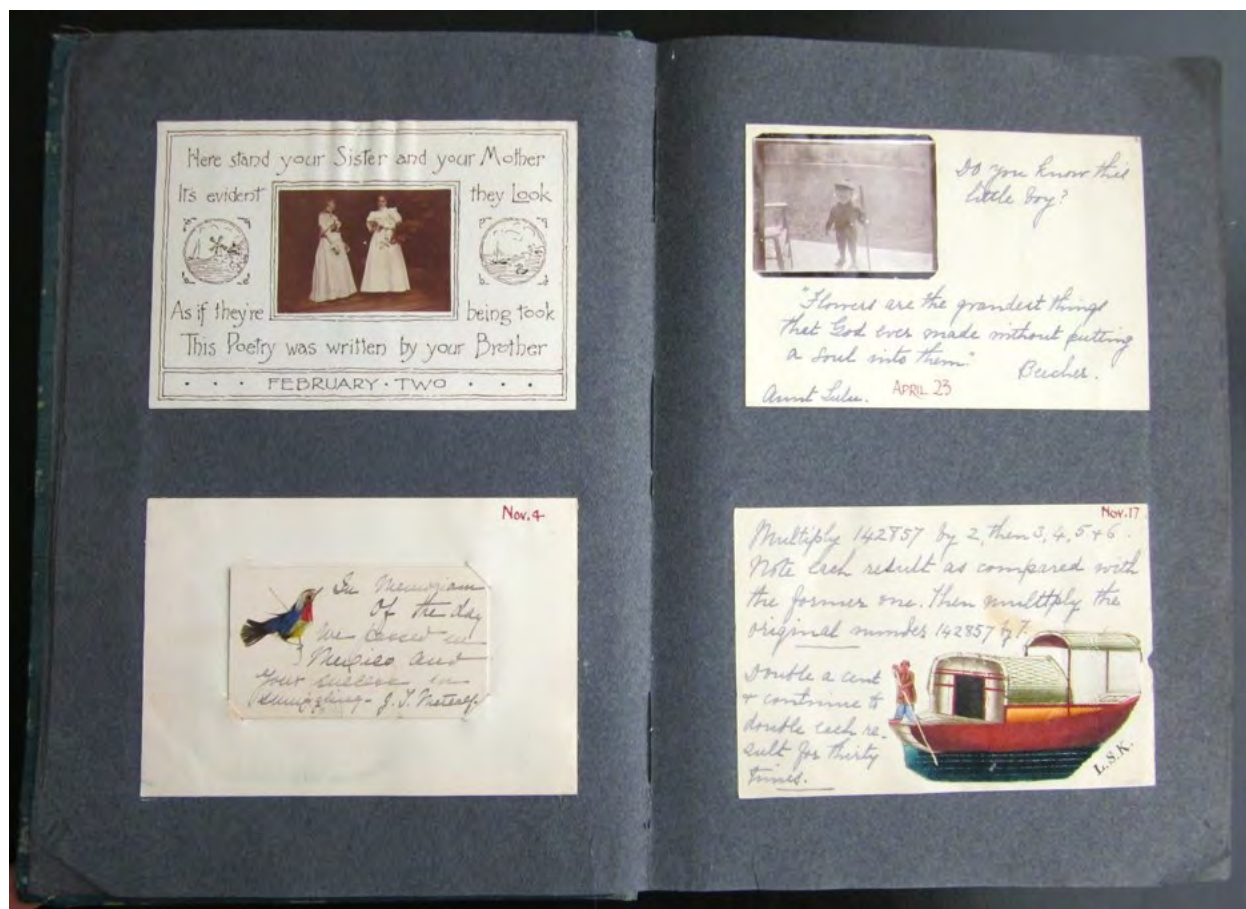 Here stand your Sister and your Mother
It's evident they Look
As if they're being took
This Poetry was written by your Brother
FEBRUARY · TWO
Nov. 4
In Memoriam
Of the day
We passed in
Mexico and
Your success in
Smuggling - J. T. Metcalf.
Do you know this
little boy?
"Flowers are the grandest things
that God ever made without putting
a soul into them."
Beecher.
Aunt Lulu. APRIL 23
Nov. 17
Multiply 142857 by 2, then 3, 4, 5 + 6.
Note each result as compared with
the former one. Then multiply the
original number 142857 by 7.
Double a cent
+ continue to
double each re-
sult for thirty
times.
L.S.K.